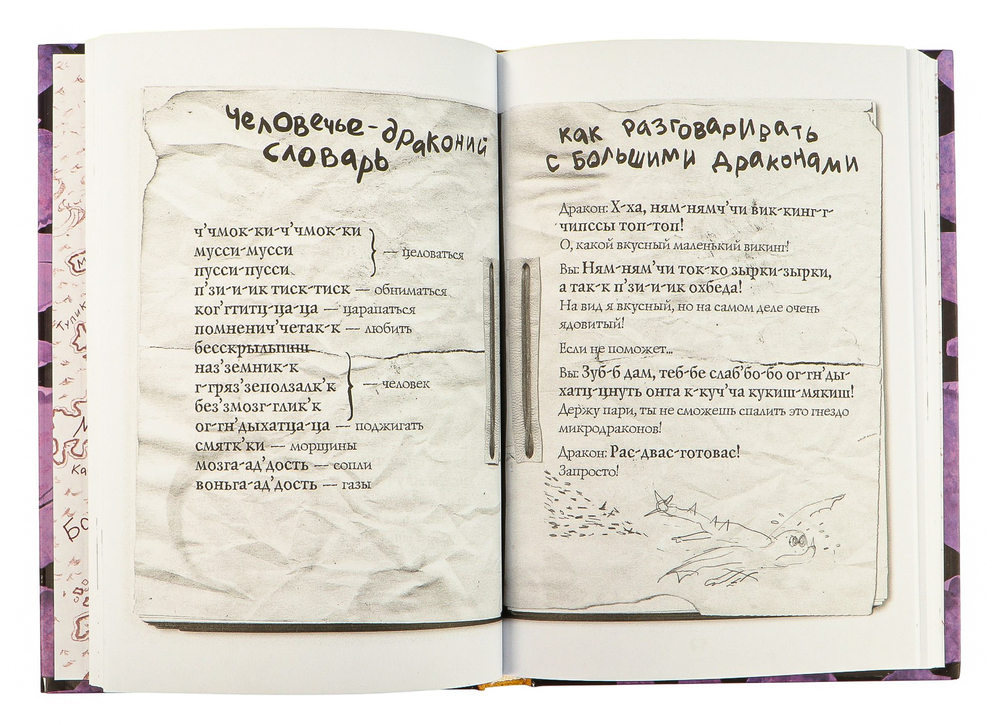 человечье-драконий
словарь
ч'чмок-ки-ч'чмок-ки
мусси-мусси — целоваться
пусси-пусси
п'зи-и-ик тиск-тиск — обниматься
ког'гтитц-ца-ца — царапаться
помненич'четак-к — любить
бесскрылыпшш
наз'земник-к
г-гряз'зеползалк'к — человек
без'змозг-глик'к
ог-гн'дыхатца-ца — поджигать
смятк'ки — морщины
мозга-ад'дость — сопли
воньга-ад'дость — газы
как разговаривать
с большими драконами
Дракон: Х-ха, ням-нямч'чи вик-кинг-г-
чипссы топ-топ!
О, какой вкусный маленький викинг!
Вы: Ням-ням'чи ток-ко зырки-зырки,
а так-к п'зи-и-ик охбеда!
На вид я вкусный, но на самом деле очень
ядовитый!
Если не поможет...
Вы: Зуб-б дам, теб-бе слаб'бо-бо ог-гн'ды-
хатц-цнуть онта к-куч'ча кукиш-мякиш!
Держу пари, ты не сможешь спалить это гнездо
микродраконов!
Дракон: Рас-двас-готовас!
Запросто!